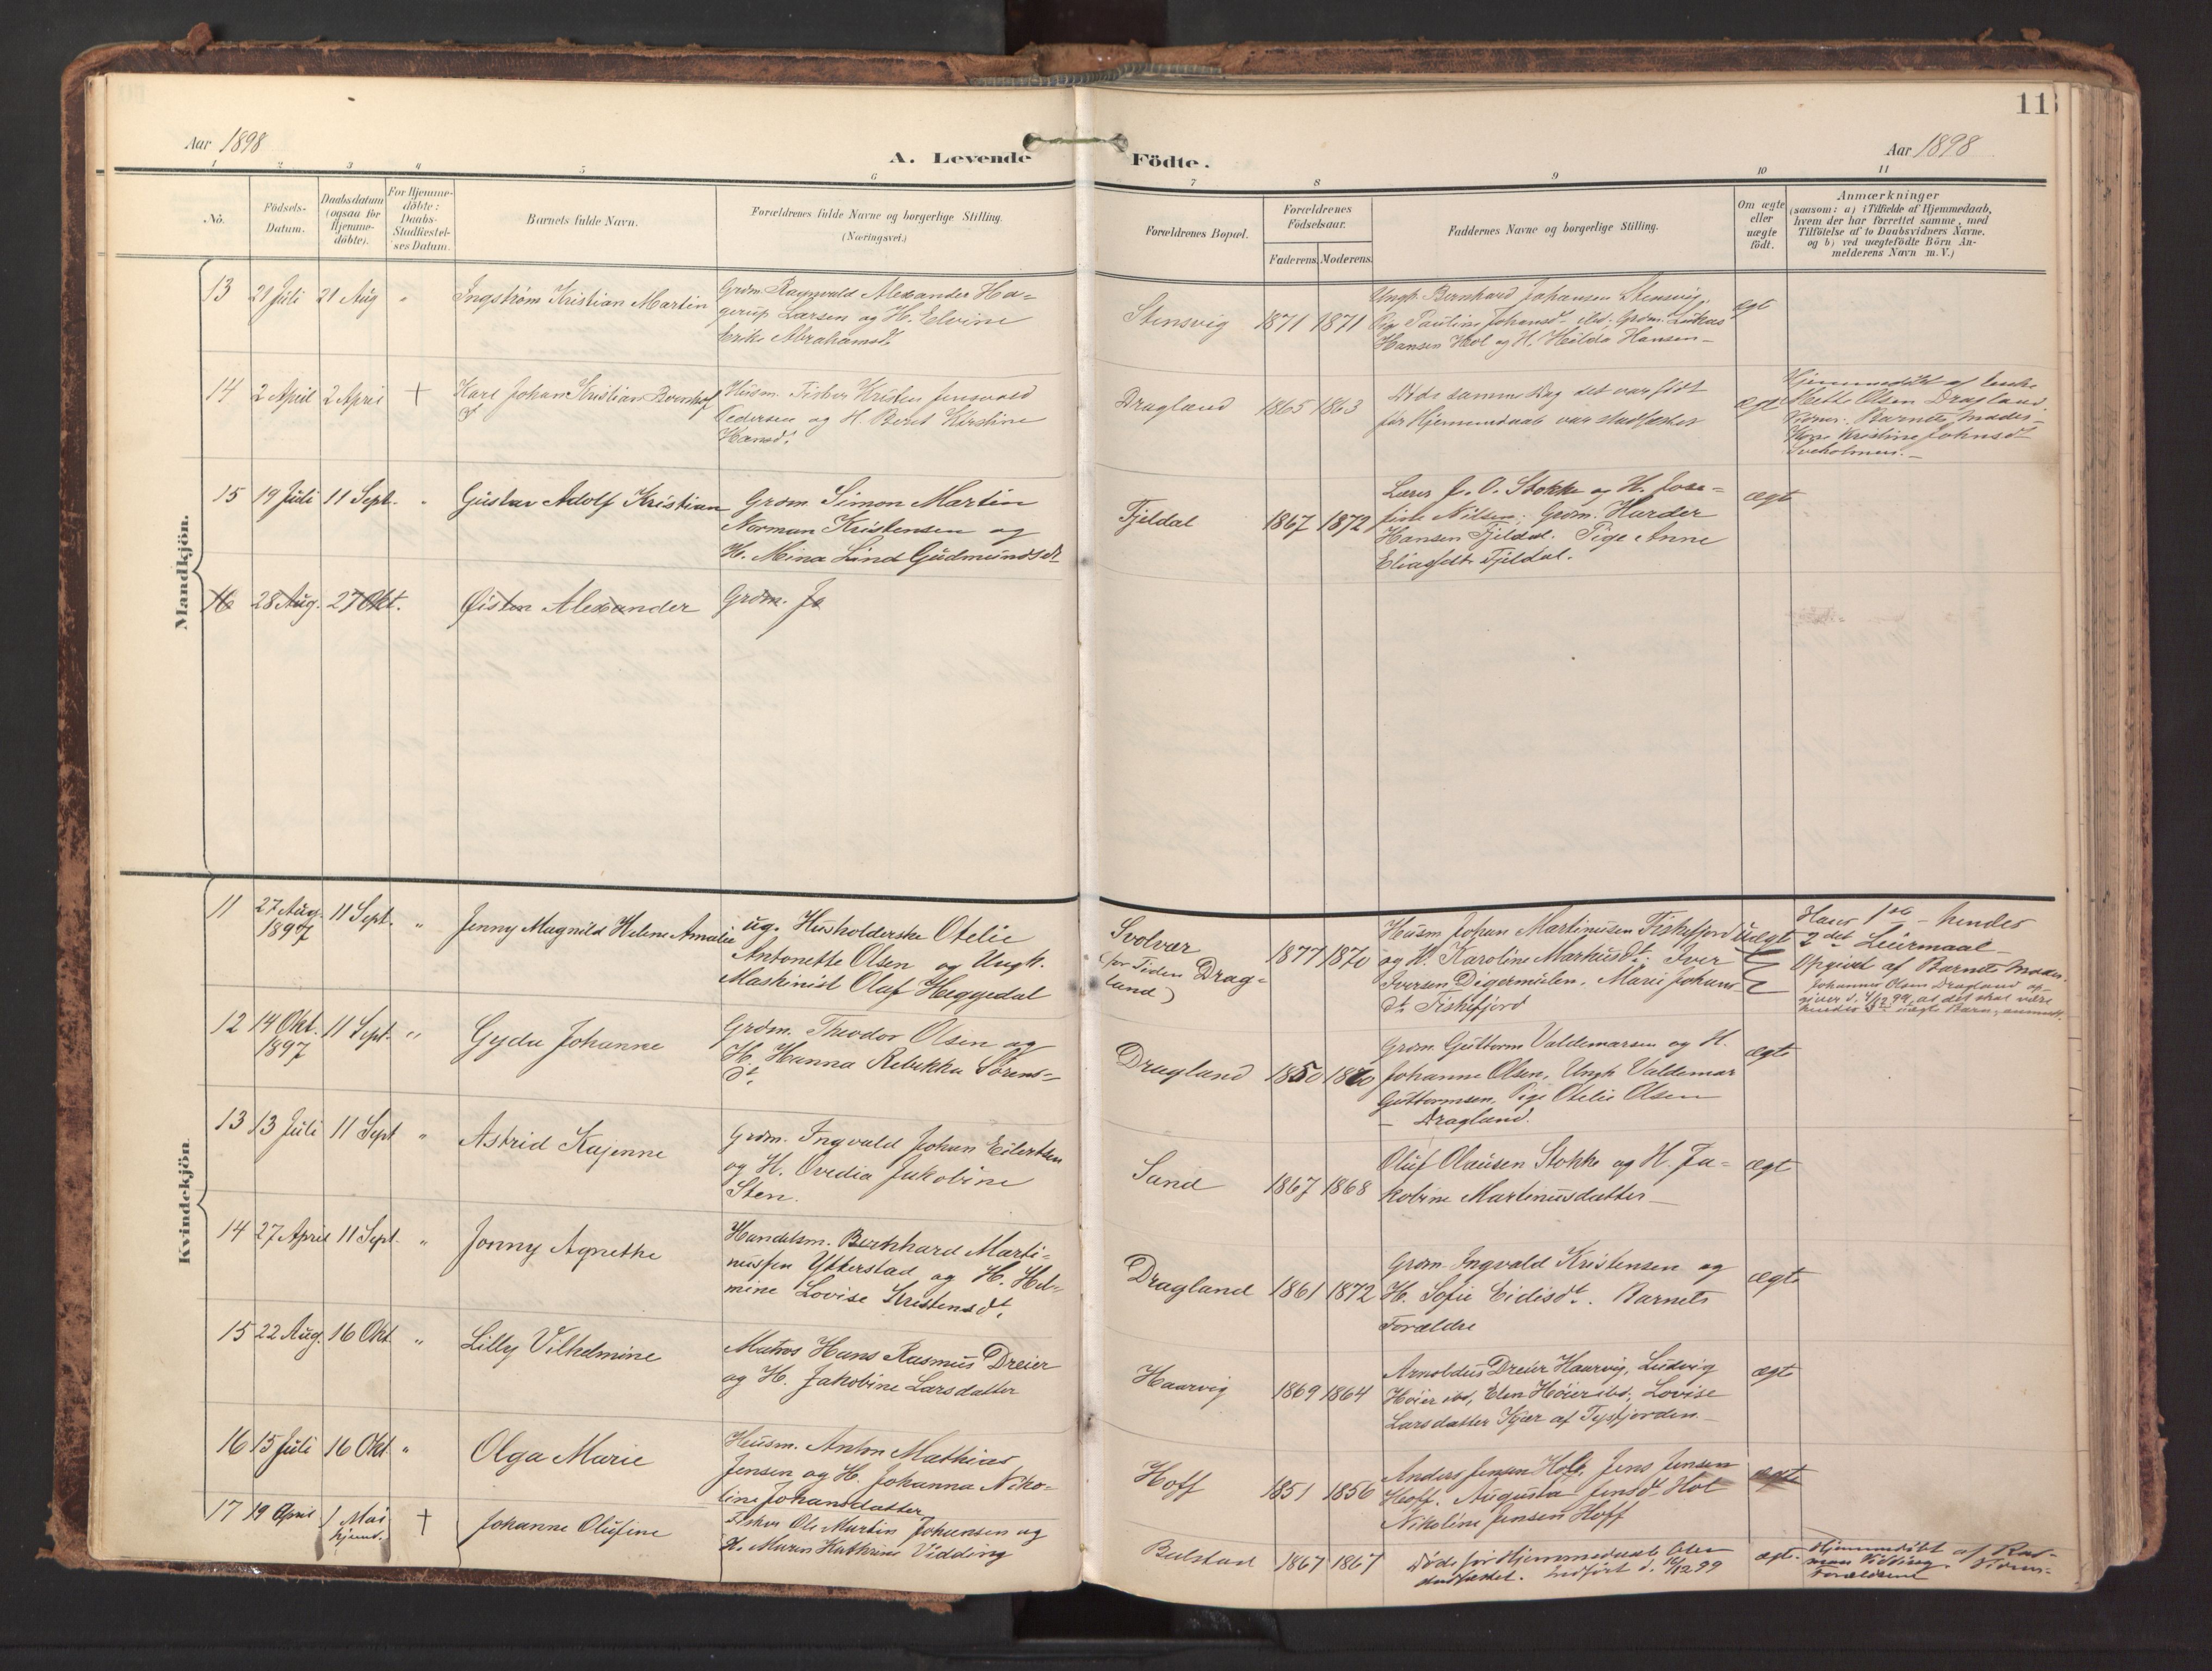 11
Aar 1898
A. Levende
Födte.
Aar 1898
1
2
3
4
5
6
7
8
9
10
11
No.
Födsels-
Datum.
Daabsdatum
(ogsaa for
Hjemme-
döbte).
For Hjemme-
döbte:
Daabs-
Stadfæstel-
ses Datum.
Barnets fulde Navn.
Forældrenes fulde Navne og borgerlige Stilling.
(Næringsvei.)
Forældrenes Bopæl.
Forældrenes
Födselsaar.
Faderens. Moderens.
Faddernes Navne og borgerlige Stilling.
Om ægte
eller
uægte
födt.
Anmærkninger
(saasom: a) i Tilfælde af Hjemmedaab,
hvem der har forrettet samme, med
Tilföielse af to Daabsvidners Navne,
og b) ved uægtefödte Börn An-
melderens Navn m. V.)
Mandkjön.
13 21 Juli 21 Aug " Ingstrøm Kristian Martin
Grdm. Ragnvald Alexander Ha-
gerup Larsen og H. Elvine
Erike Abrahamsdt
Stensvig 1871 1871
Ungk. Bernhard Johansen Stensvig,
Pige Pauline Johansdt ibd. Grdm. Lukas
Hansen Hol og H. Hilda Hansen
ægt
14 2 April 2 April + Karl Johan Kristian
Husm. Fisker Kristen Jensvold
Pedersen og H. Berit Kirstine
Hansdt
Dragland 1865 1863
Døde samme Dag det var født
før Hjemmedaab var stadfæstet
ægt
Hjemmedøbt af
Mette Olsen Dragland.
Barnets Moder
Kone Kristine Johnsdt
15 19 Juli 11 Sept. " Gustav Adolf Kristian
Grdm Simon Martin
Norman Kristensen og
H. Mina Lind Gudmundsdt
Fjeldal 1867 1872
Lærer J. O. Stokke og H. Jose-
fine Nilsen; Grdm. Harder
Hansen Fjeldal. Pige Anne
Eliasdt Fjeldal.
ægt
16 28 Aug. 27 Okt. Øisten Alexander Grdm. Jo
Kvindekjön.
11 27 Aug. 1897 11 Sept. " Jenny Magnild Helene Amalie
ug. Husholderske Otelie
Antonette Olsen og Ungk.
Maskinist Olaf Heggedal
Svolvær
(for Tiden Drag-
land)
1877 1870
Husm Johan Martinusen Fiskefjord
og H. Karoline Markusdt. Iver
Iversen Digermulen, Marie Johans-
dt. Fiskefjord
uægt
Hans 1ste – hendes
2det Leiermaal –
Opgivet af Barnets Moder.
Johannes Olsen Dragland op-
giver d. 4/12 99 at det skal være
hendes 3die uægte Barn,
12 14 Okt. 1897 11 Sept. " Gyda Johanne
Grdm. Theodor Olsen og
H. Hanna Rebekka Sørens-
dt.
Dragland 1850 1870
Grdm Guttorm Valdemarsen og H.
Johanne Olsen, Ungk Valdemar
Guttormsen, Pige Otelie Olsen
– Dragland.
ægte
13 13 Juli 11 Sept " Astrid Kajenne
Grdm. Ingvald Johan Eilertsen
og H. Ovedia Jakobine
Sten.
Sand 1867 1868
Oluf Olausen Stokke og H. Ja-
kobine Martinusdatter –
ægt
14 27 April 11 Sept. " Jonny Agnethe
Handelsm. Bernhard Marti-
nussen Ytterstad og H. Hel-
mine Lovise Kristensdt.
Dragland 1861 1872
Grdm Ingvald Kristensen og
H. Sofie Eidisdt. Barnets
Forældre
ægte
15 22 Aug. 16 Okt " Lilly Vilhelmine
Matros Hans Rasmus Dreier
og H. Jakobine Larsdatter
Haarvig 1869 1864
Arnoldus Dreier Haarvig, Ludvig
Høier ibd, Elen Høier ibd, Lovise
Larsdatter Kjær af Tysfjorden –
ægt
16 15 Juli 16 Okt. " Olga Marie
Husm. Anton Mathias
Jensen og H. Johanna Niko-
line Johansdatter
Hoff 1851 1856
Anders Jensen Hol, Jens Jensen
Hoff. Augusta Jensdt Hol
Nikoline Jensen Hoff
ægte
17 19 April 1 Mai
hjemd.
+ Johanne Olufine
Fisker Ole Martin Johansen og
H. Maren Kathrine Vidding
Balstad 1867 1867
Døde før Hjemmedaab blev
stadfæstet. Indført d. 16/12 99
ægt.
Hjemmedøbt af Ras-
mus Vidding.
Forældrene